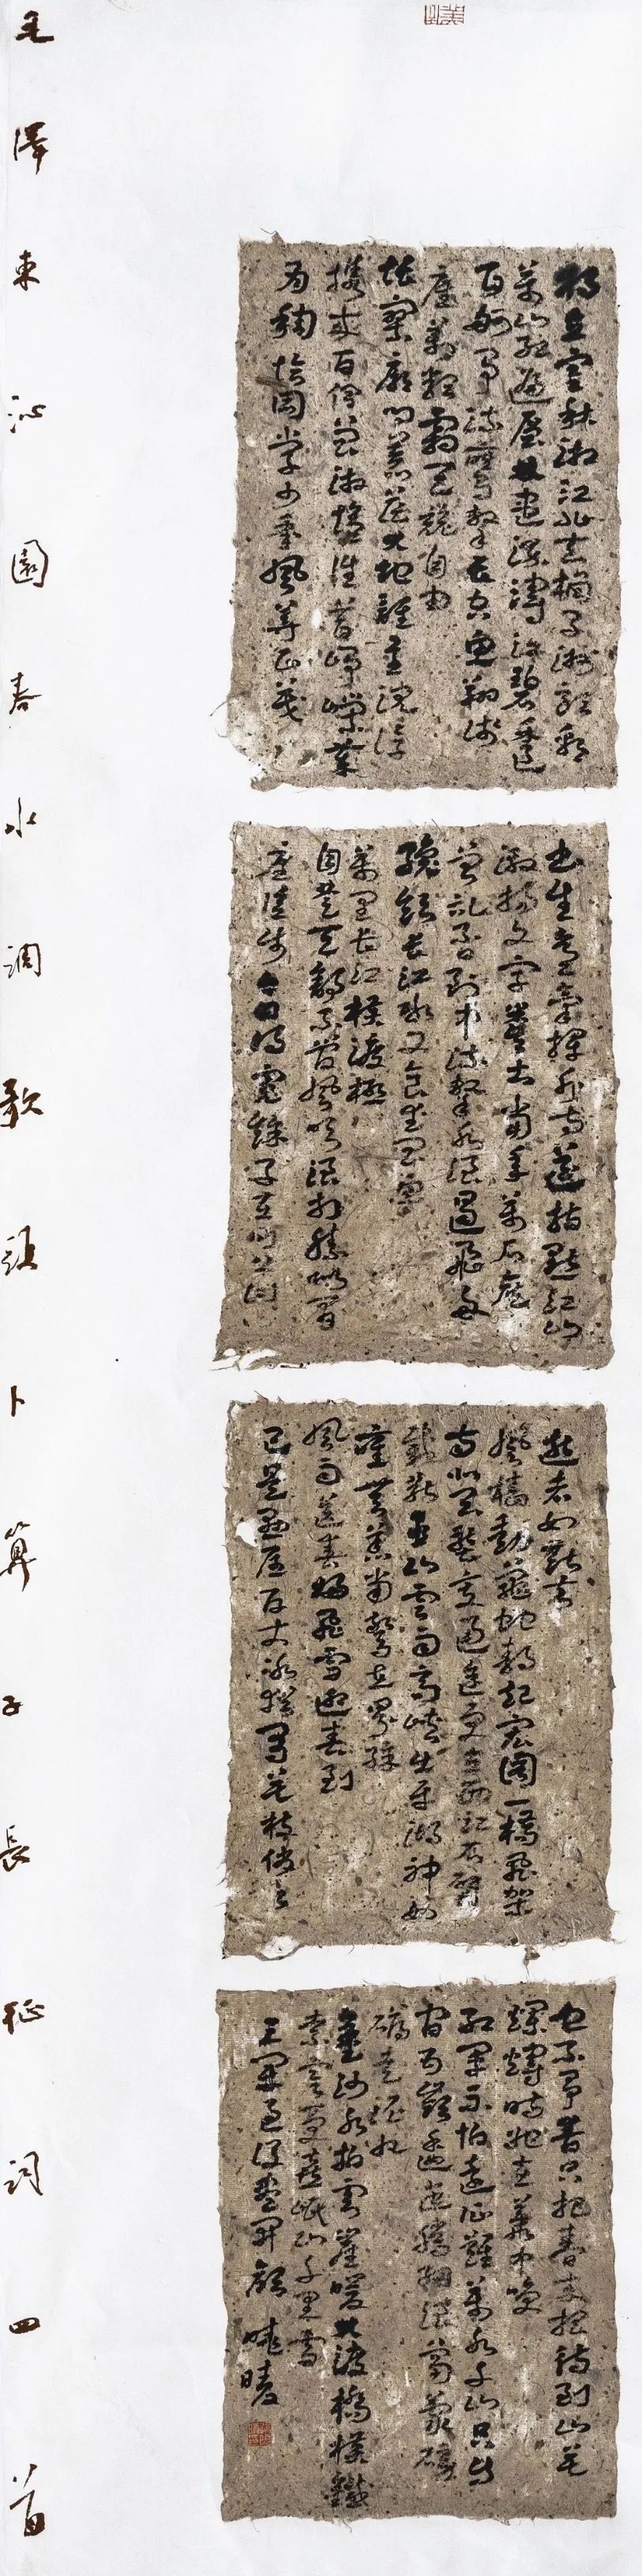 獨立寒秋湘江北去橘子洲頭看
萬山紅遍層林盡染漫江碧透
百舸爭流鷹擊長空魚翔淺
底萬類霜天競自由
悵寥廓問蒼茫大地誰主沉浮
攜來百侶曾遊憶往昔崢嶸歲
月稠恰同學少年風華正茂
書生意氣揮斥方遒指點江山
激揚文字糞土當年萬戶侯
曾記否到中流擊水浪遏飛舟
纔飲長江水又食武昌魚
萬里長江橫渡極
目楚天舒不管風吹浪打勝似閒
庭信步今日得寬餘子在川上曰
逝者如斯夫
風檣動龜蛇靜起宏圖一橋飛架
南北天塹變通途更立西江石壁
截斷巫山雲雨高峽出平湖神女
應無恙當驚世界殊
風雨送春歸飛雪迎春到
已是懸崖百丈冰猶有花枝俏俏
也不爭春只把春來報待到山花
爛熳時她在叢中笑
紅軍不怕遠征難萬水千山只等
閒五嶺逶迤騰細浪烏蒙磅
礴走泥丸
金沙水拍雲崖暖大渡橋橫鐵
索寒更喜岷山千里雪
三軍過後盡開顏 曉陵
毛澤東沁園春水調歌頭卜算子長征詞四首